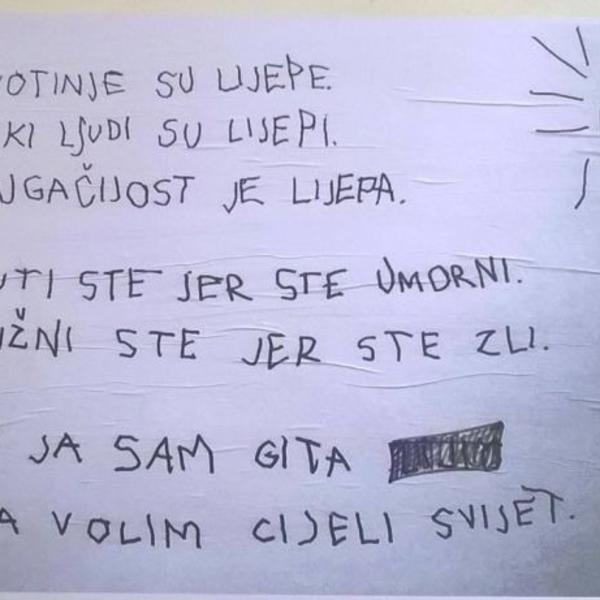 OTINJE SU LIJEPE.
KI LJUDI SU LIJEPI.
UGAČIJOST JE LIJEPA.
UTI STE JER STE UMORNI.
UŽNI STE JER STE ZLI.
JA SAM GITA
A VOLIM CIJELI SVIJET.